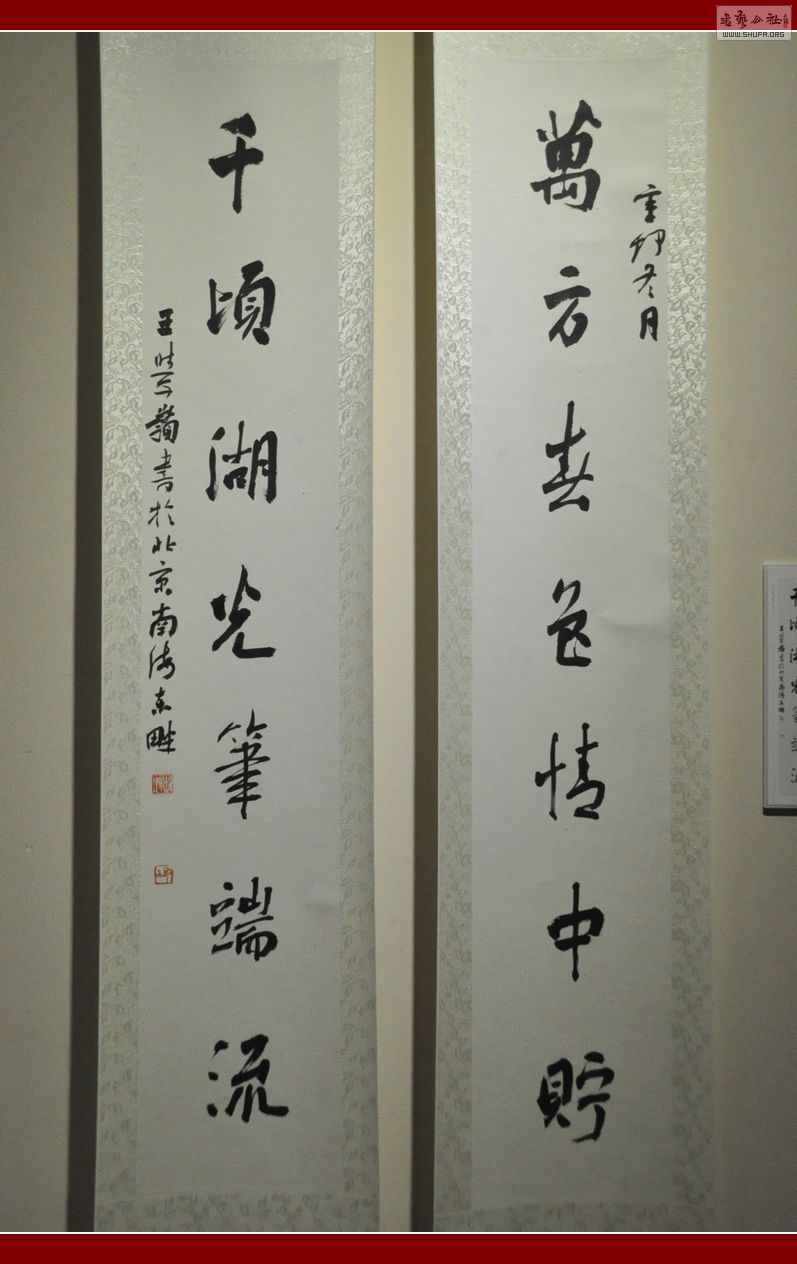 萬方春色情中貯
辛卯冬月
千頃湖光筆端流
王 嶺書於北京南海東畔
書藝公社
WWW.SHUFA.ORG